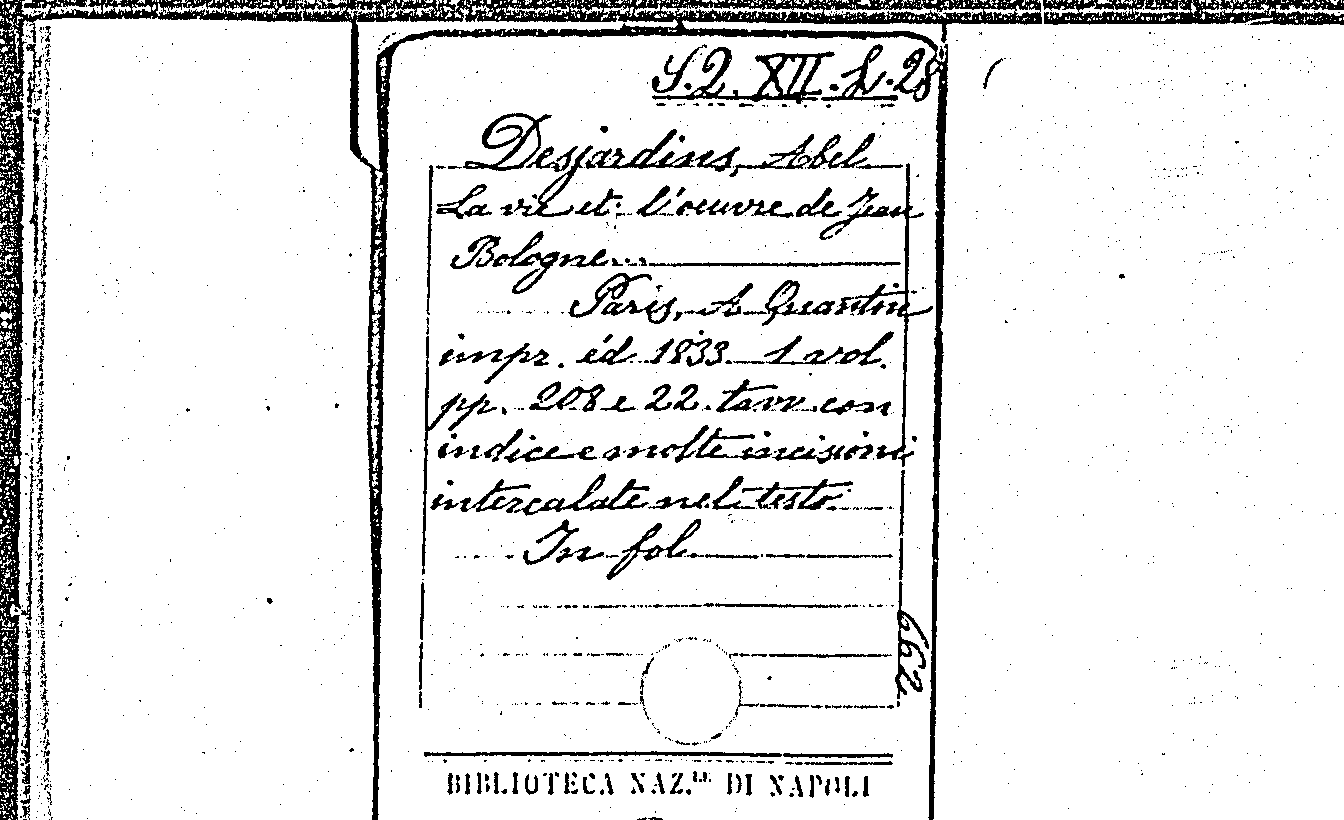 S.2. XII. L. 28
Desjardins, Abel
La vie et l'oeuvre de Jean
Bologne...
Paris, A Quantin
impr. éd 1833 1 vol.
pp. 208 e 22 tavv con
indice e molte incisioni
intercalate nel testo.
In fol
662
BIBLIOTECA NAZ.LE DI NAPOLI